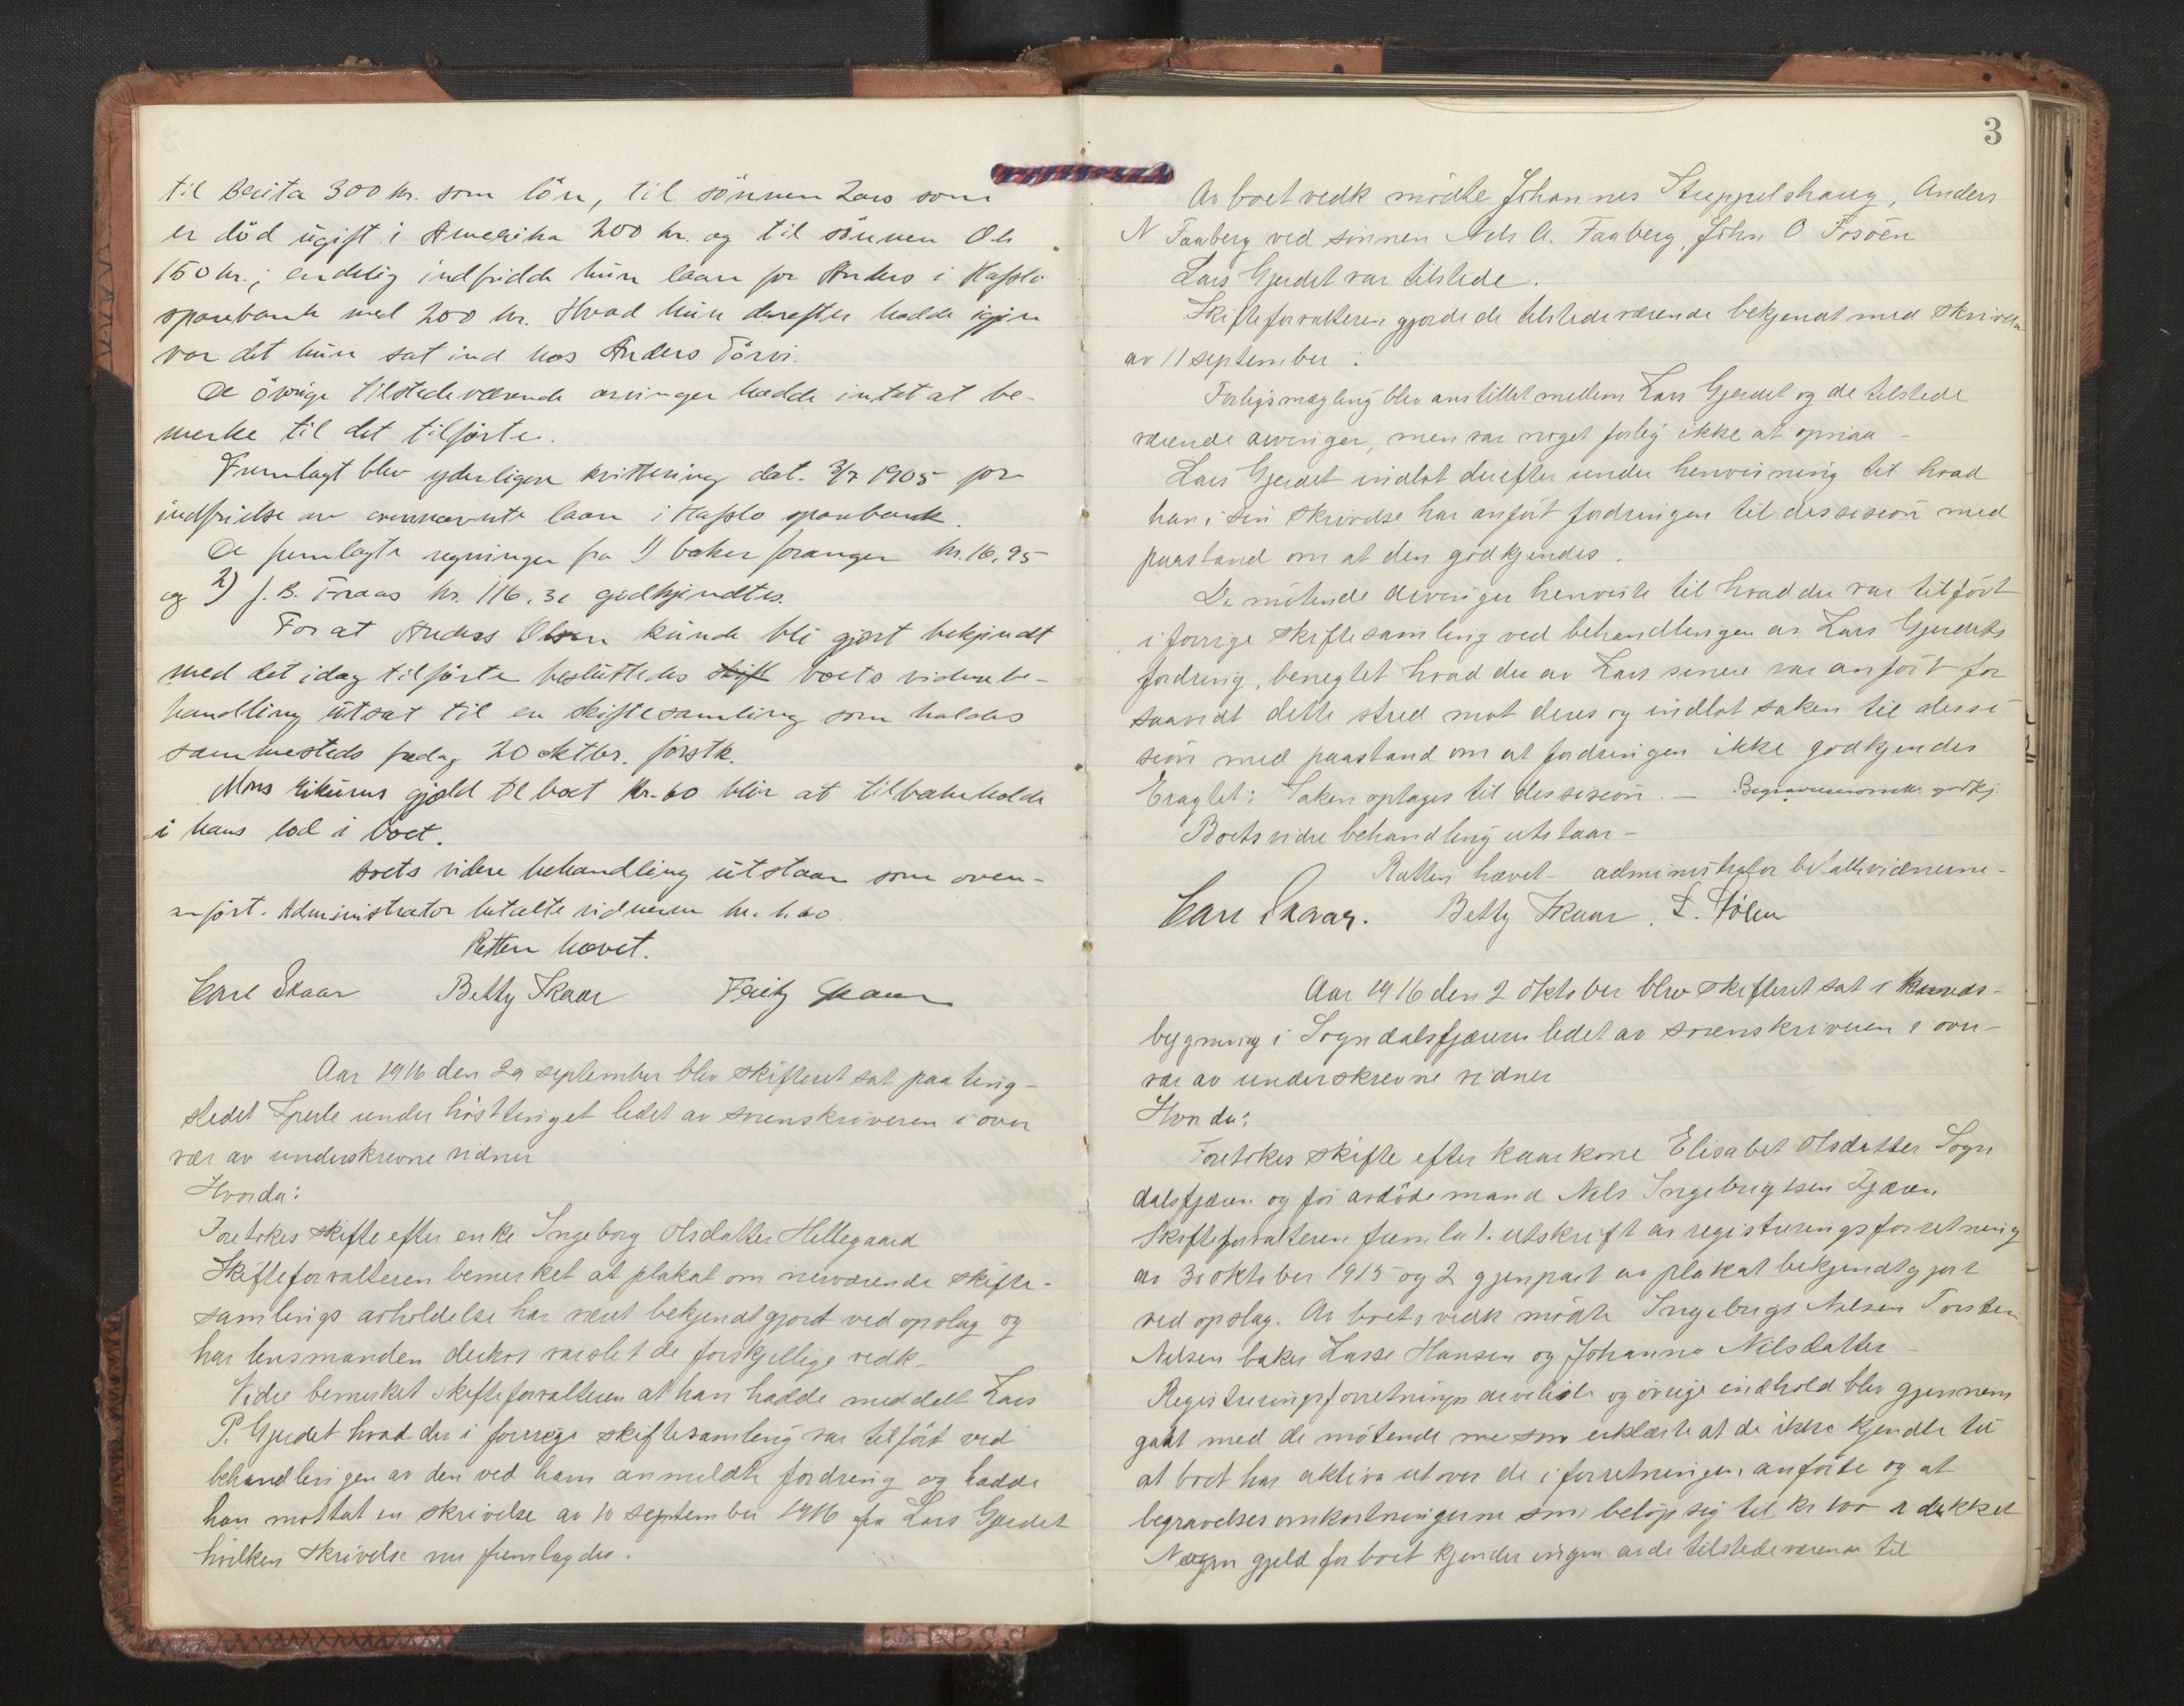 til Brita 300 kr. som lön, til sönnen Lars som
er död ugift i Amerika 200 kr. og til sönnen Ole
150 kr.; endelig indfridde hun laan for Anders i Hafslo
sparebank med 200 kr. Hvad hun derefter hadde igjen
var det hun sat ind hos Anders Törvi.
De övrige tilstedeværende arvinger hadde intet at be-
merke til det tilförte.
Fremlagt blev yderligere kvittering dat. 3/7 1905 for
indfrielse av ovennævnte laan i Hafslo sparebank.
De fremlagte regninger fra 1) baker foranger kr. 16,95
og 2) J. B. Fraas kr. 116,31 godkjendtes.
For at Anders Olsen kunde bli gjort bekjendt
med det idag tilförte besluttedes skift boets videre be-
handling utsat til en skiftesamling som holdes
sammesteds fredag 20 oktbr. förstk.
Mons Eikums gjæld til boet kr. 60 blir at tilbakeholde
i hans lod i boet.
Boets videre behandling utstaar som oven-
anfört. Administrator betalte vidnerne kr. 1.60.
Retten hævet.
Carl Skaar Betty Skaar Fritz Skaar
Aar 1916 den 29 september blev skifteret sat paa ting-
stedet Sperle under hösttinget ledet av sorenskriveren i over
vær av underskrevne vidner
Hvorda:
Foretokes skifte efter enke Ingeborg Olsdatter Hillegaard
Skifteforvalteren bemerket at plakat om nærværende skifte-
samlings avholdelse har været bekjendtgjort ved opslag og
har lensmanden derhos varslet de forskjellige vedk.
Vidre bemerket skifteforvalteren at han hadde meddelt Lars
P. Gjerdet hvad der i forrige skiftesamling var tilfört ved
behandlingen av den ved ham anmeldte fordring og hadde
han mottat en skrivelse av 10 september 1916 fra Lars Gjerdet
hvilken skrivelse nu fremlagdes.
3
Av boet vedk mödte Johannes Stuppelshaug, Anders
N Faaberg ved sönnen Nels A. Faaberg, John O Fosöen
Lars Gjerdet var tilstede.
Skifteforvalteren gjorde de tilstedeværende bekjendt med skrivelse
av 11 september.
Forligsmægling blev anstillet mellem Lars Gjerdet og de tilstede
værende arvinger, men var noget forlig ikke at opnaa -
Lars Gjerdet indlot derefter under henvisning til hvad
han i sin skrivelse har anfört fordringen til dessision med
paastand om at den godkjendes.
De mötende arvinger henviste til hvad der var tilfört
i forrige skiftesamling ved behandlingen av Lars Gjerdets
fordring, benegtet hvad der av Lars senere var anfört for
saavidt dette stred mot deres og indlot saken til dessi
sion med paastand om at fordringen ikke godkjendes
Eragtet: Saken optages til dessision. - Begravelsesomk. godkj.
Boets vidre behandling utstaar -
Retten hævet - administrator bet alle vidnerne -
Carl Skaar. Betty Skaar. L. Stölen
Aar 1916 den 2 oktober blev skifteret sat i
bygning i Sogndalsfjæren ledet av sorenskriveren i over-
vær av underskrevne vidner
Hvorda:
Foretokes skifte efter kaarkone Elisabet Olsdatter Sogn
dalsfjæren og för avdöde mand Nils Ingebrigtsen Fjæren
Skifteforvalteren fremla 1. utskrift av registreringsforretning
av 30 oktober 1915 og 2 gjenpart av plakat bekjendtgjort
ved opslag. Av boets vedk mödte Ingebrigt Nilsen Torsten
Nilsen baker Lasse Hansen og Johanna Nilsdatter -
Registreringsforretningens arveliste og övrige indhold blev gjennem
gaat med de mötende som erklærte at de ikke kjendte til
at boet har aktiva utover de i forretningen anförte og at
begravelsesomkostningerne som belöp sig til kr 100 er dækket
Nogen gjeld for boet kjender ingen av de tilstedeværende til